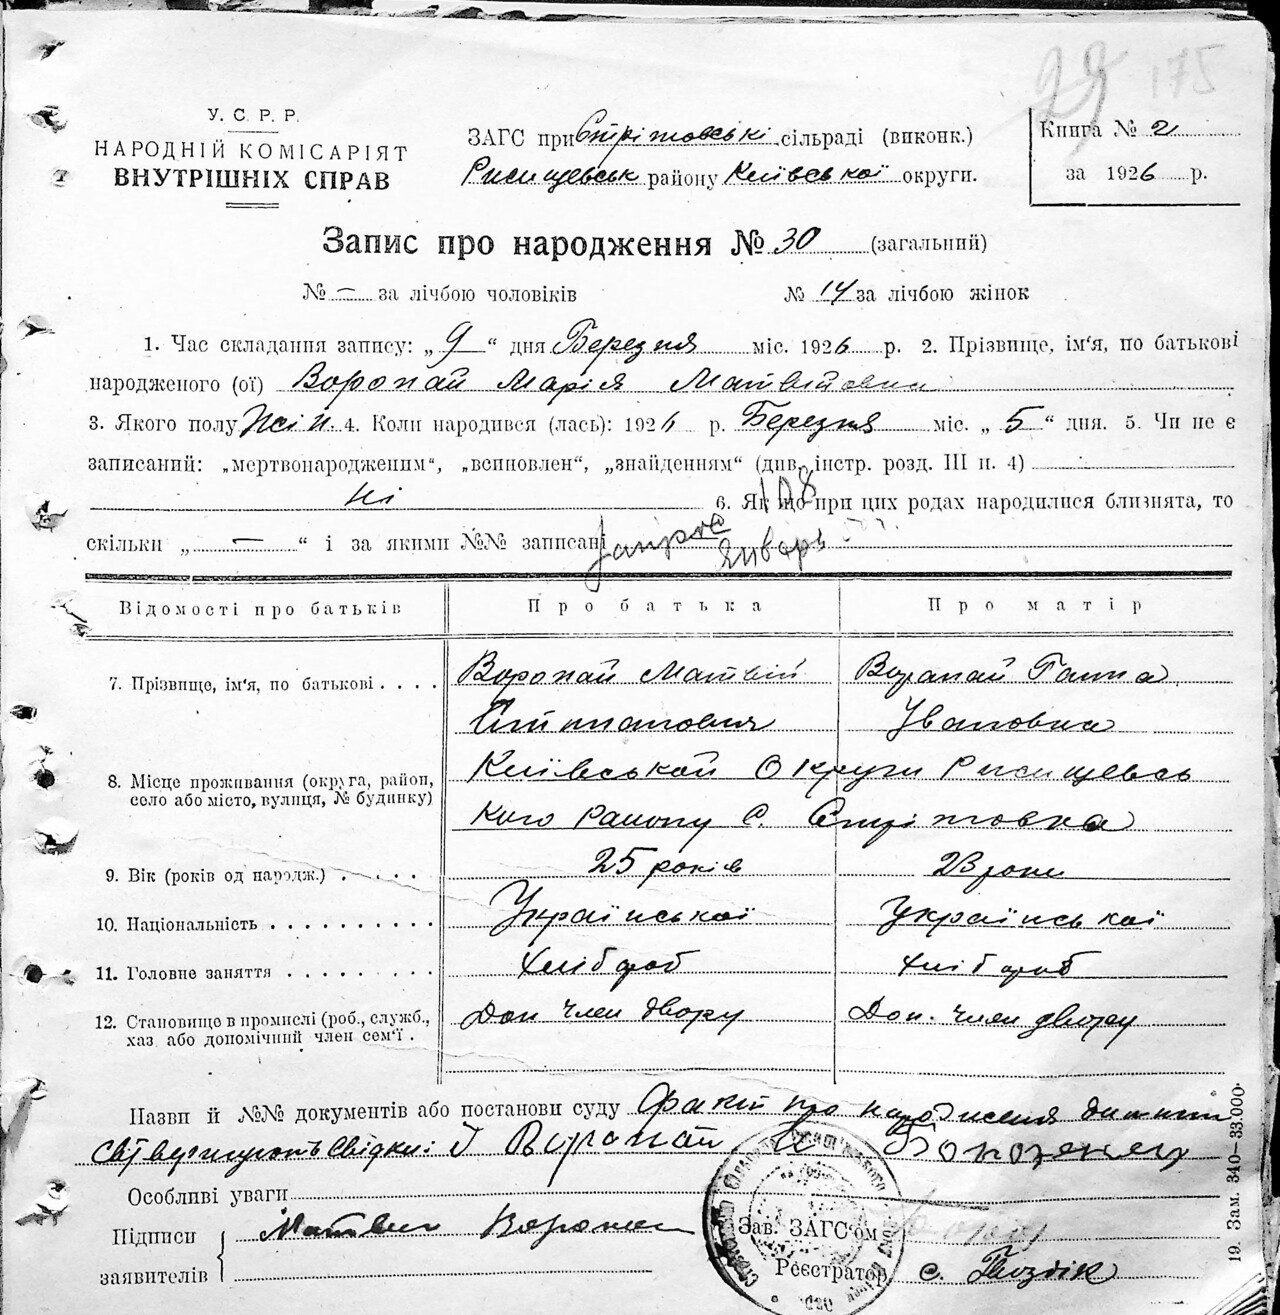 29 175
У. С. Р. Р.
НАРОДНІЙ КОМІСАРІЯТ
ВНУТРІШНІХ СПРАВ
ЗАГС при Стрітовські сільраді (виконк.)
Ржищевськ району Київської округи.
Книга № 2
за 1926 р.
Запис про народження № 30 (загальний)
№ — за лічбою чоловіків № 14 за лічбою жінок
1. Час складання запису: „ 9 “ дня Березня міс. 1926 р. 2. Прізвище, ім‘я, по батькові
народженого (ої) Воропай Марія Матвіївни
3. Якого полу Жін 4. Коли народився (лась): 1926 р. Березня міс. „ 5 “ дня. 5. Чи не є
записаний: „мертвонародженим“, „всиновлен“, „знайденням“ (див. інстр. розд. III п. 4)
ні 6. Якщо при цих родах народилися близнята, то
108
скільки „ — “ і за якими №№ записані
январь
Відомості про батьків Про батька Про матір
7. Прізвище, ім‘я, по батькові . . . . Воропай Матвій Воропай Ганна
Степановия Івановна
8. Місце проживання (округа, район, село або місто, вулиця, № будинку) Київськой Округи Ржищевсь
кого Району С. Стрітовка
9. Вік (років од народж.) . . . . . 25 років 23 роки
10. Національність . . . . . . . . . . Української Української
11. Головне заняття . . . . . . . . . Хлібороб Хлібороб
12. Становище в промислі (роб., служб., хаз. або допомічний член сем‘ї . Доп член двору Доп. член двору
Назви й №№ документів або постанови суду Факт про народження дитини
Свідки: І Воропай
Особливі уваги
Підписи
заявителів
Матвей Воропай
Зав. ЗАГС‘ом
Реєстратор с. Гвоздік
19. Зам. 340—33.000.